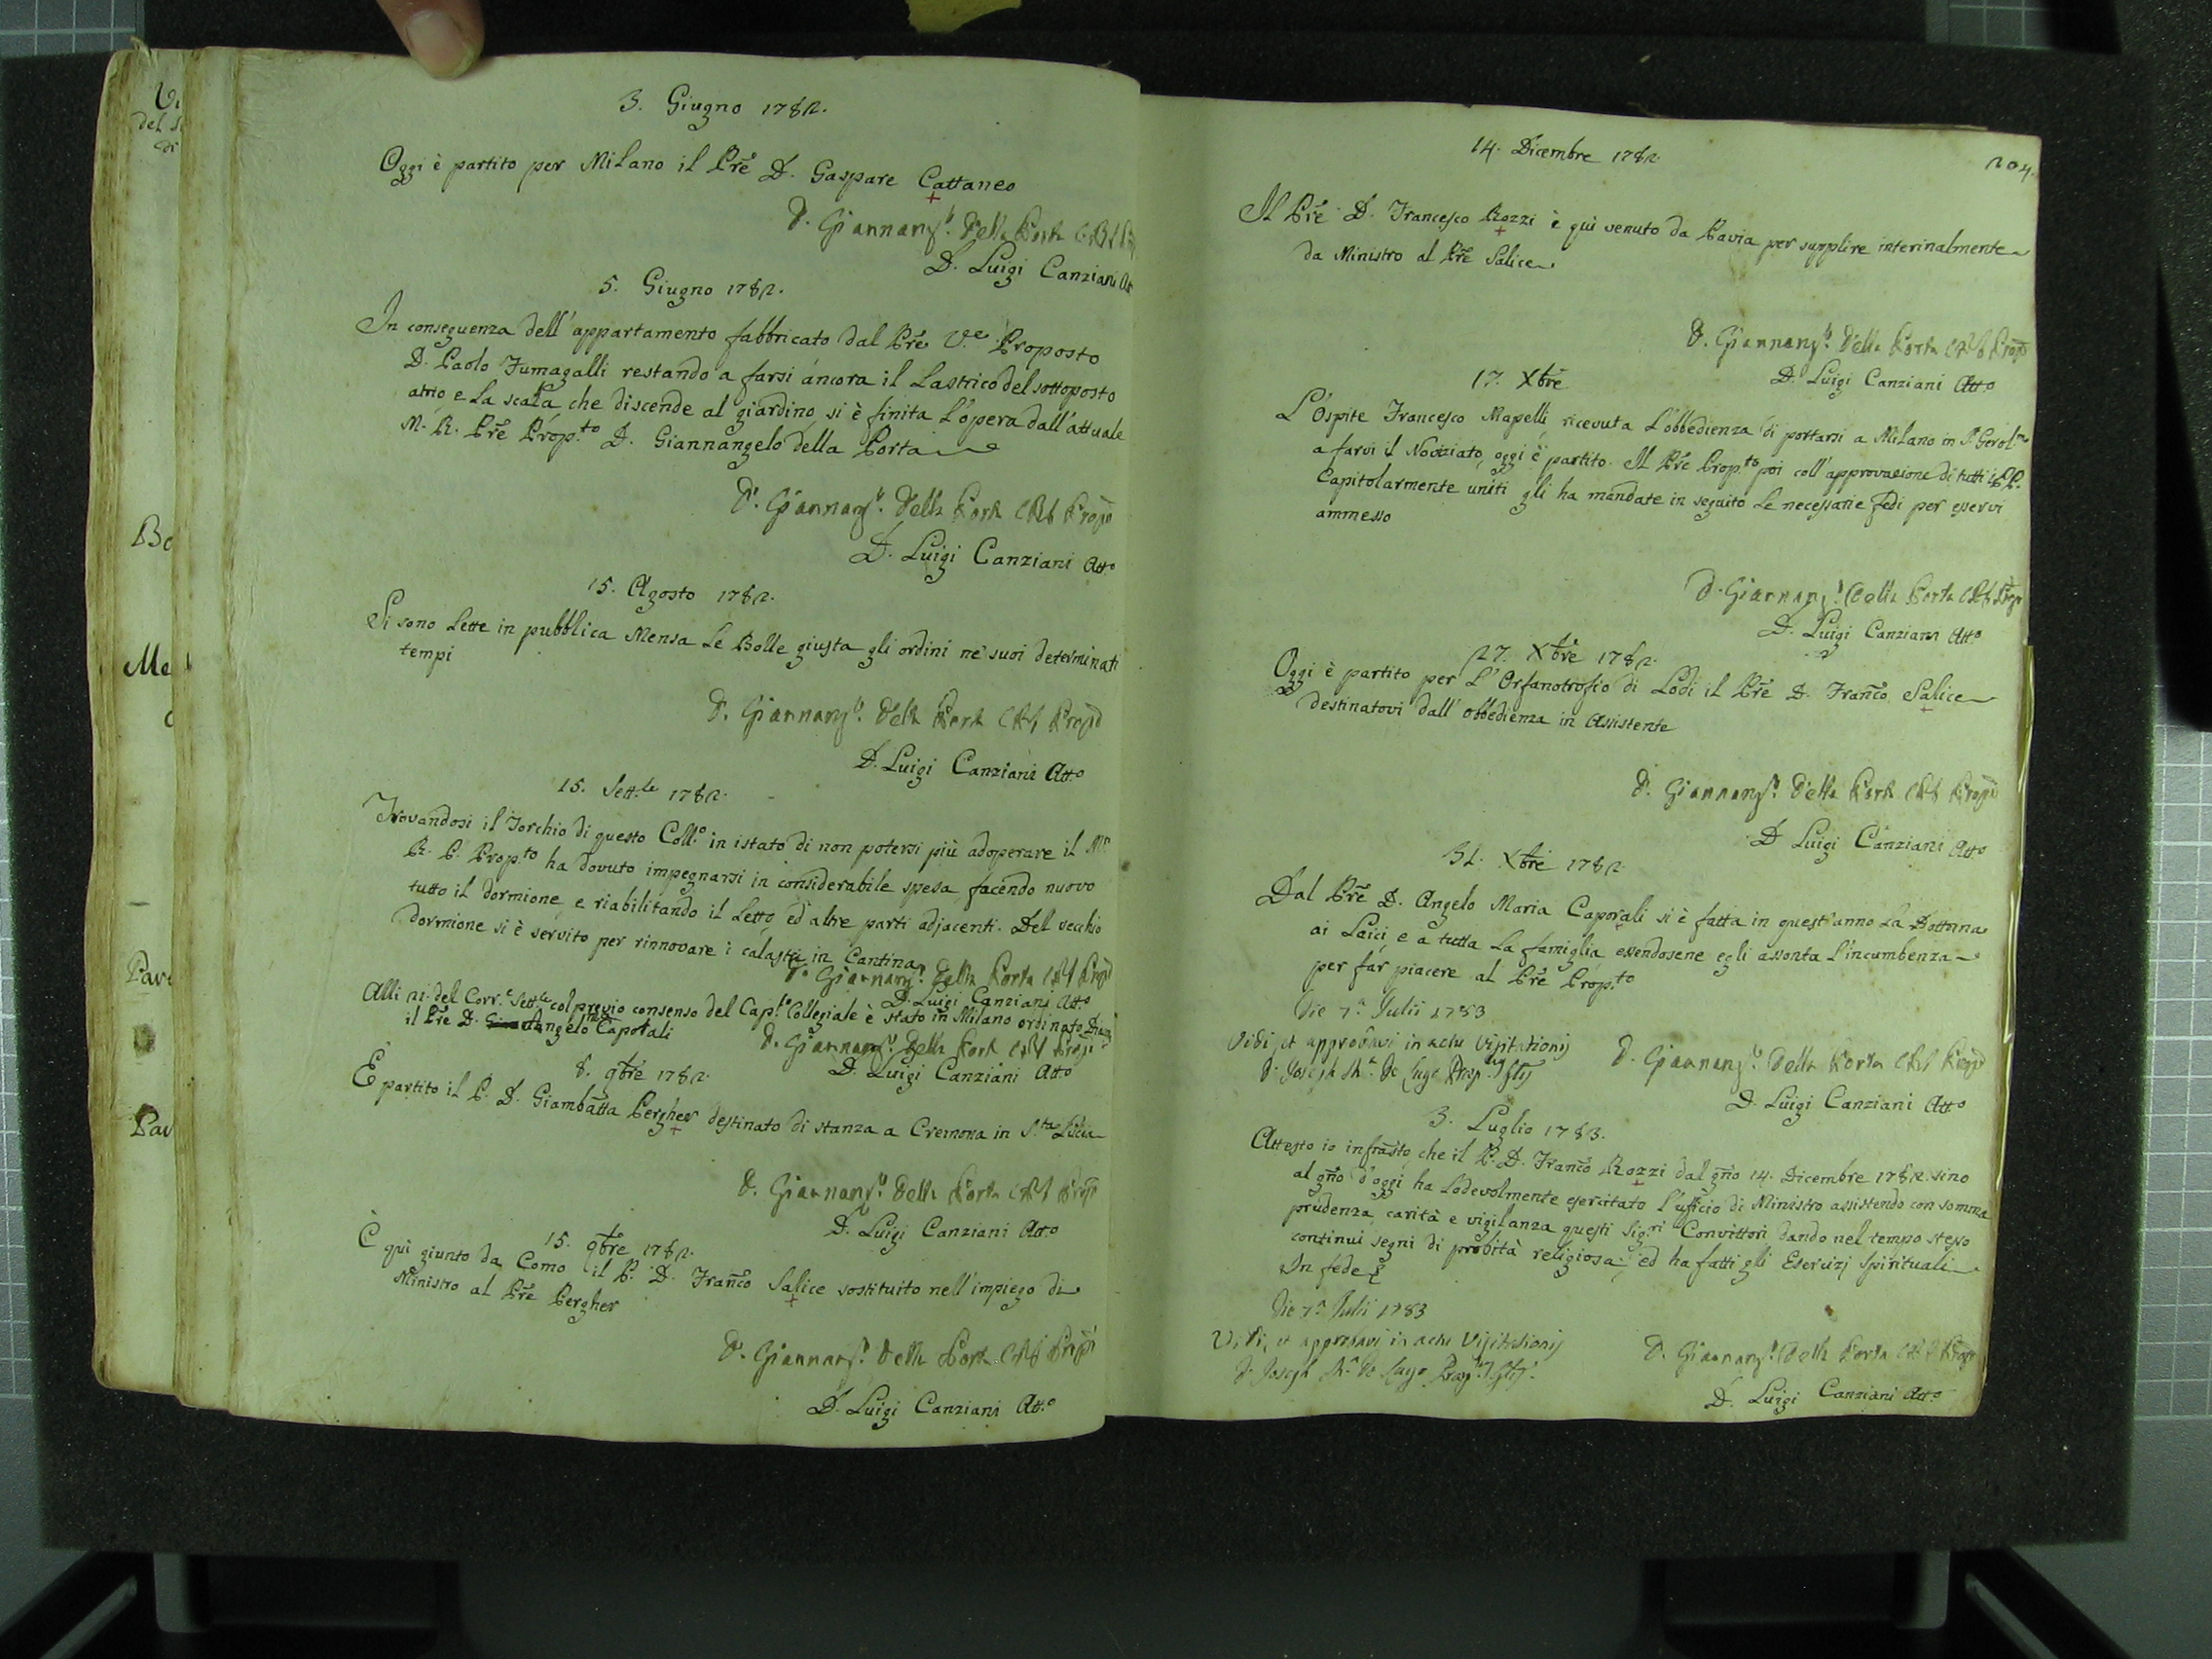 3. Giugno 1782.
Oggi è partito per Milano il Prē D. Gaspare Cattaneo
D. Giannang.º Della Porta CRS
D. Luigi Canziani Att
5. Giugno 1782.
In conseguenza dell'appartamento fabbricato dal Prē V.e Proposto
D. Paolo Fumagalli restando a farsi ancora il Lastrico del sottoposto
atrio e la scala che discende al giardino, si è finita l'opera dall'attuale
M. R. Prē Prop.to D. Giannangelo della Porta
D. Giannang.º Della Porta CRS Propō
D. Luigi Canziani Att.o
15. Agosto 1782.
Si sono lette in pubblica Mensa le Bolle giusta gli ordini ne' suoi determinati
tempi
D. Giannang.º Della Porta CRS Propō
D. Luigi Canziani Att.o
15. Sett.be 1782.
Trovandosi il Torchio di questo Coll.o in istato di non potersi più adoperare il M.o
R. P. Prop.to ha dovuto impegnarsi in considerabile spesa, facendo nuovo
tutto il dormione, e riabilitando il Letto, ed altre parti adjacenti. Del vecchio
dormione si è servito per rinnovare i calastri in Cantina
D. Giannang.º Della Porta CRS Propō
D. Luigi Canziani Att.o
Alli 21. del Corr.e Sett.be col previo consenso del Cap.lo Collegiale è stato in Milano ordinato
il Prē D. Angelo Caporali
D. Giannang.º Della Porta CRS Propō
D. Luigi Canziani Att.o
8. 9brē 1782.
È partito il P. D. Giambatta Pergher destinato di stanza a Cremona in S.ta Lucia
D. Giannang.º Della Porta CRS Propō
D. Luigi Canziani Att.o
15. 9brē 1782.
È quì giunto da Como il P. D. Franco Salice sostituito nell'impiego di
Ministro al Prē Pergher
D. Giannang.º Della Porta CRS Propō
D. Luigi Canziani Att.o
204.
14. Dicembre 1782.
Il Prē D. Francesco Rozzi è quì venuto da Pavia per supplire interinalmente
da Ministro al Prē Salice
D. Giannang.º Della Porta CRS Propō
D. Luigi Canziani Att.o
17. Xbrē
L'Ospite Francesco Mapelli, ricevuta l'obbedienza di portarsi a Milano in S. Gerol.mo
a farvi il Noviziato, oggi è partito. Il Prē Prop.to poi coll'approvazione di tutti i PP.
Capitolarmente uniti gli ha mandate in seguito le necessarie fedi per esservi
ammesso
D. Giannang.º Della Porta CRS Propō
D. Luigi Canziani Att.o
27. Xbrē 1782.
Oggi è partito per l'Orfanotrofio di Lodi il Prē D. Franco Salice
destinatovi dall'obbedienza in Assistente
D. Giannang.º Della Porta CRS Propō
D. Luigi Canziani Att.o
31. Xbrē 1782.
Dal Prē D. Angelo Maria Caporali si è fatta in quest'anno la Dottrina
ai Laici, e a tutta la famiglia essendosene egli assonta l'incumbenza
per far piacere al Prē Prop.to
Die 7.a Julii 1783
Vidi, et approbavi in actu Visitationis
D. Joseph M.a De Lugo Prep.
D. Giannang.º Della Porta CRS Propō
D. Luigi Canziani Att.o
3. Luglio 1783.
Attesto io infrasto che il P. D. Franco Rozzi dal gno 14. Dicembre 1782. sino
al gno d'oggi ha lodevolmente esercitato l'ufficio di Ministro assistendo con somma
prudenza carità e vigilanza questi Sig.ri Convittori dando nel tempo stesso
continui segni di probità religiosa, ed ha fatti gli Esercizj Spirituali
In fede
Die 7.a Julii 1783
Vidi, et approbavi in actu Visitationis
D. Joseph M.a De Lugo Prep.
D. Giannang.º Della Porta CRS Propō
D. Luigi Canziani Att.o